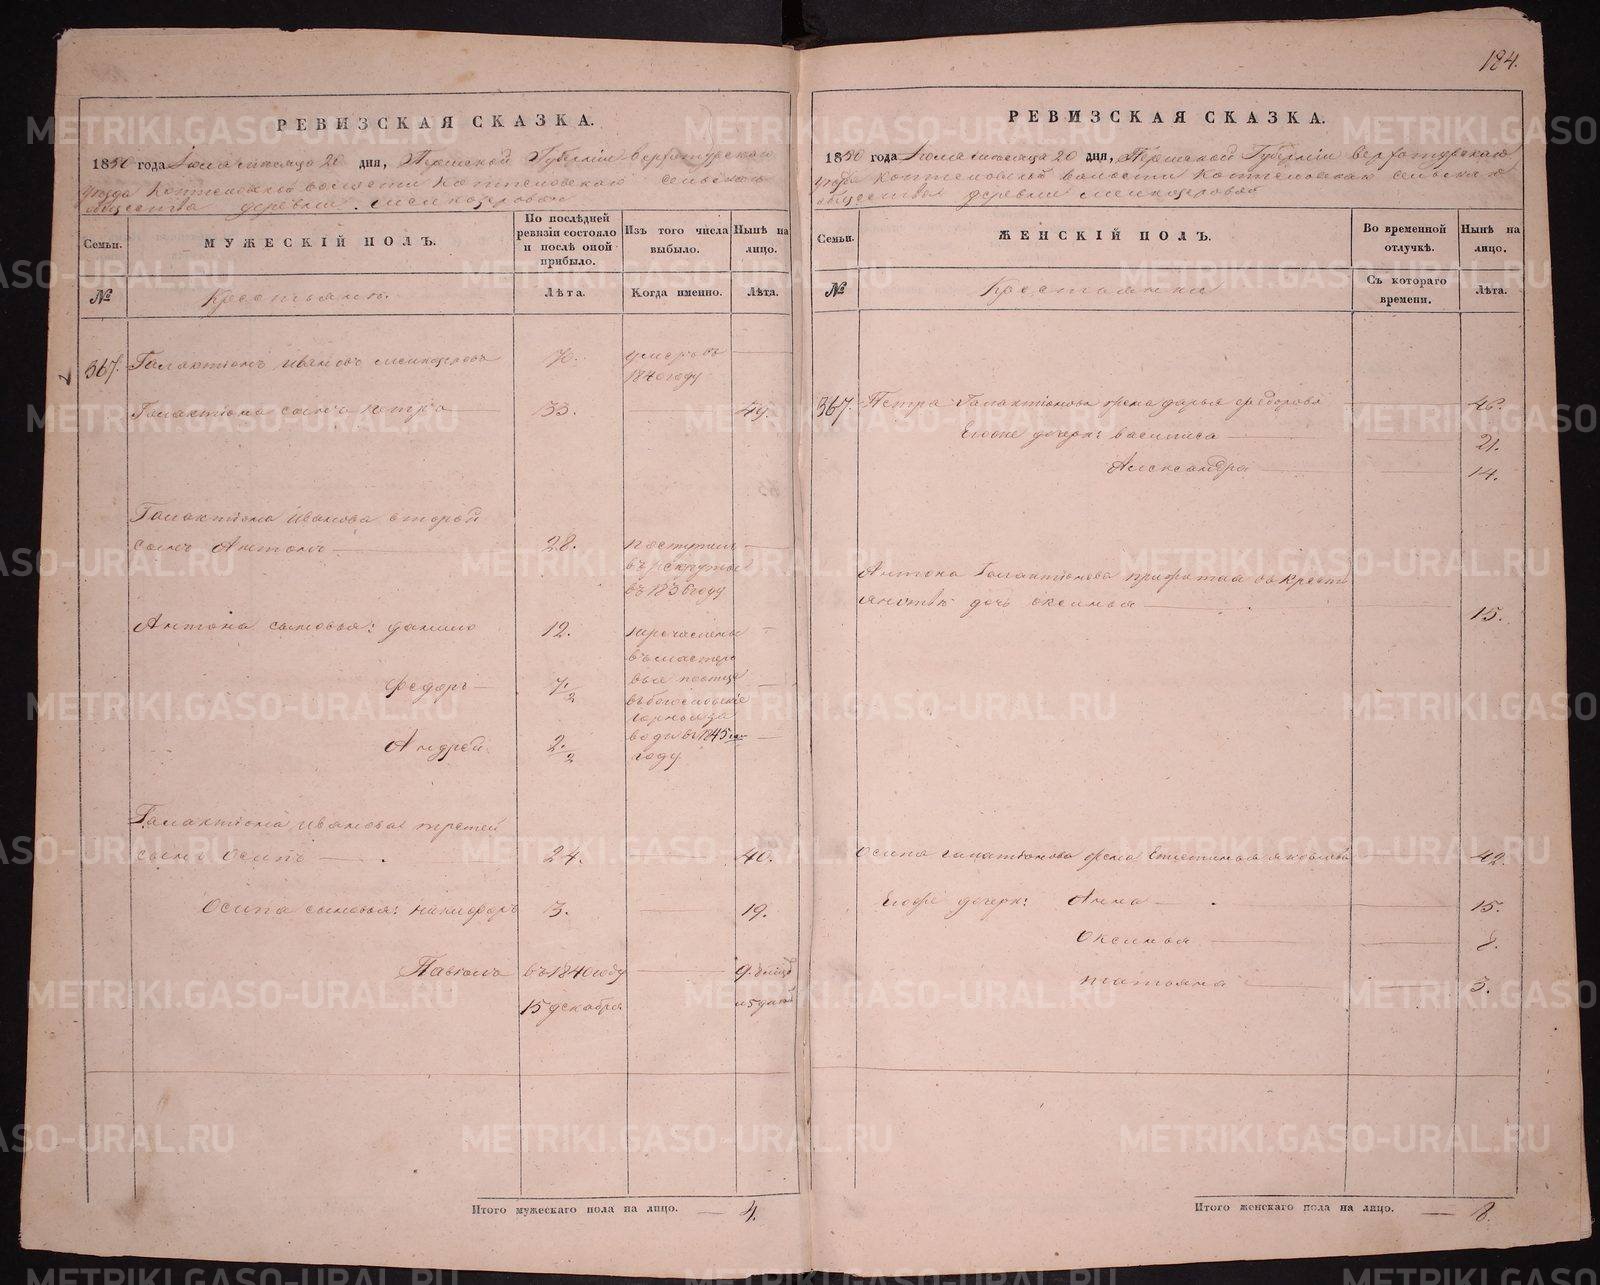 184.
РЕВИЗСКАЯ СКАЗКА.
1850 года Юля месяца 20 дня, Пермской Губернии Верхотурскаго
уезда Коптеловской волости Коптеловскаго сельскаго
общества деревни
Семьи.
МУЖЕСКІЙ ПОЛЪ.
По послѣдней ревизіи состояло и послѣ оной прибыло.
Изъ того числа выбыло.
Нынѣ на лицо.
№
Крестьяне.
Лѣта.
Когда именно.
Лѣта.
367. Галактіонъ Ивановъ 70. умеръ въ
1840 году
Галактіона сынъ Петръ 33. 49.
Галактіона Иванова второй
сынъ Антонъ 28. поступилъ
въ рекруты
въ 1836 году
Антона сыновья: Данило 12. перечислены
въ мастеро
вые
Федоръ 7 1/2
въ Богословскіе
горные за
Андрей 2 1/2 воды въ 1845
году
Галактіона Иванова третей
сынъ Осипъ 24. 40.
Осипа сыновья: Никифоръ 3. 19.
Павелъ въ 1840 году 9. лѣтъ
15 декабря
Итого мужескаго пола на лицо. — 4.
РЕВИЗСКАЯ СКАЗКА.
1850 года Юля месяца 20 дня, Пермской Губернии Верхотурскаго
уезда Коптеловской волости Коптеловскаго сельскаго
общества деревни
Семьи.
ЖЕНСКІЙ ПОЛЪ.
Во временной отлучкѣ.
Нынѣ на лицо.
№
Крестьянки
Съ котораго времени.
Лѣта.
367. Петра Галактіонова жена Дарья Федорова 46.
дочери: Василиса 21.
Александра 14.
Антона Галактіонова прижитая въ кресть
янствѣ дочь Оксинья 15.
Осипа Галактіонова жена Епистинья Яковлева 42.
дочери: Анна 15.
Оксинья 8.
Татьяна 3.
Итого женскаго пола на лицо. — 8.
METRIKI.GASO-URAL.RU